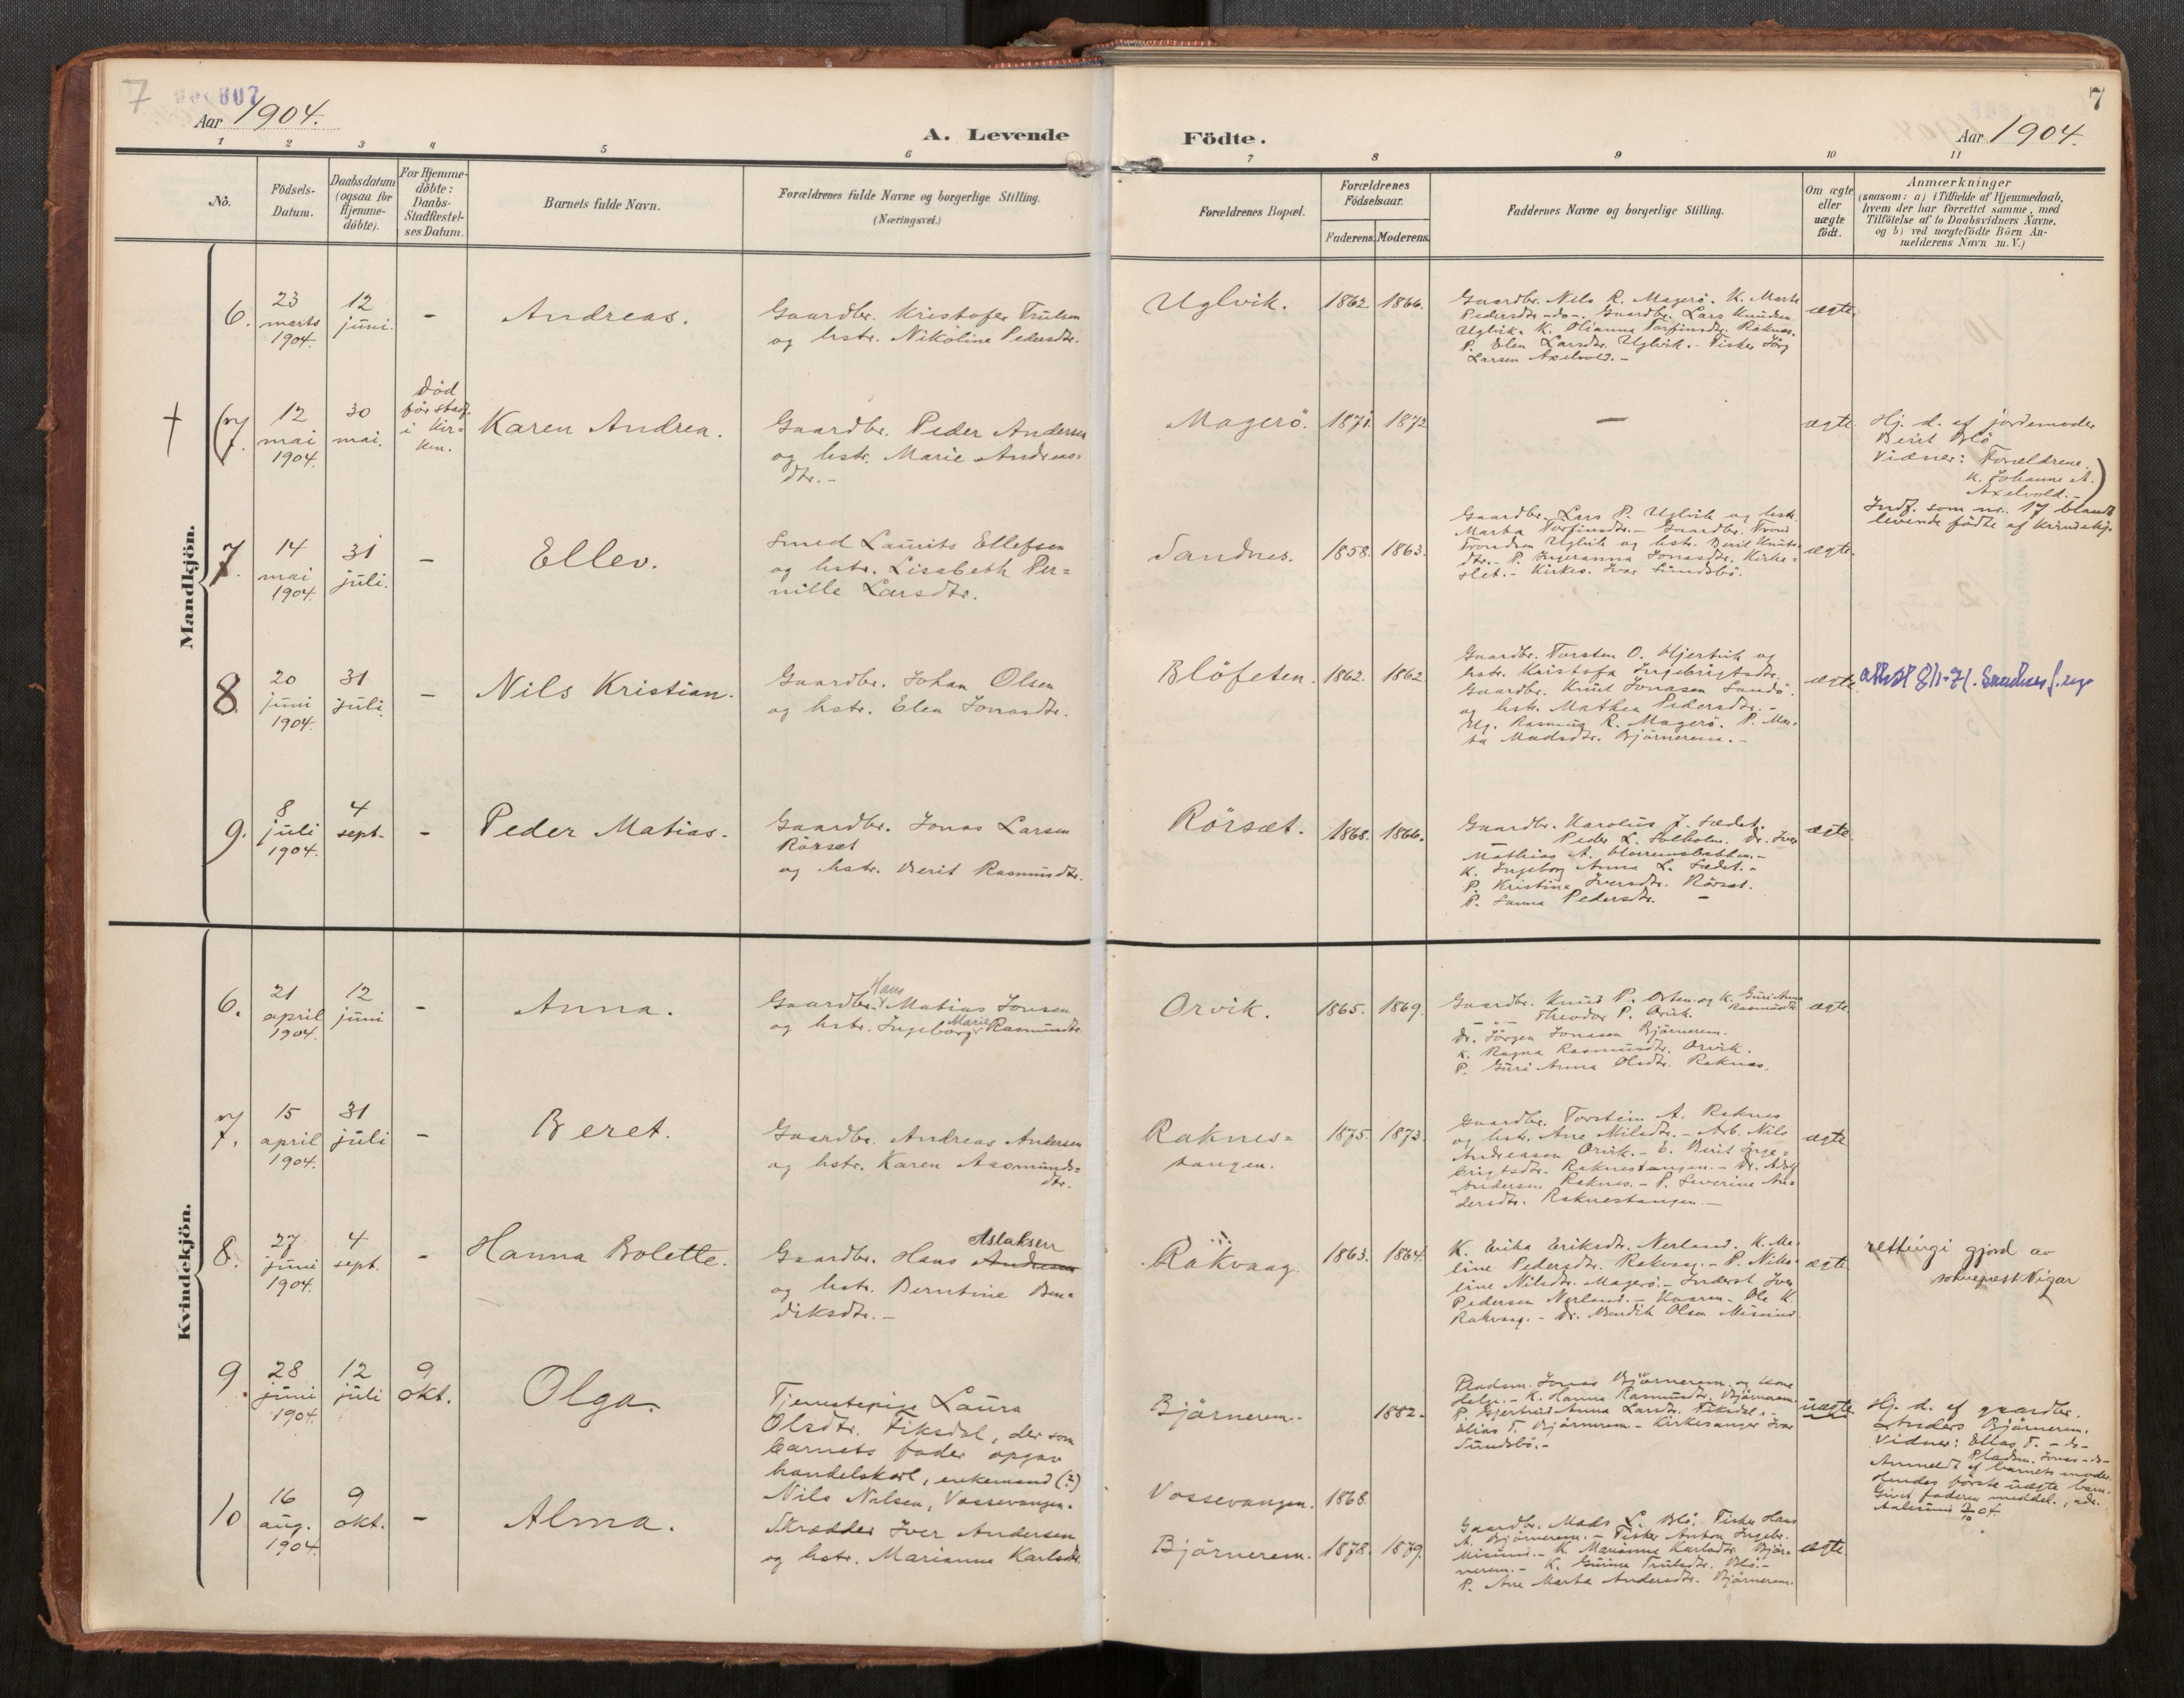 7 007
Aar 1904.
A. Levende
Födte.
7
Aar 1904.
1 2 3 4 5 6 7 8 9 10 11
Nö.
Födsels-
Datum.
Daabsdatum
(ogsaa for
Hjemme-
döbte).
For Hjemme-
döbte:
Daabs-
Stadfæstel-
ses Datum.
Barnets fulde Navn.
Forældrenes fulde Navne og borgerlige Stilling.
(Næringsvei.)
Forældrenes Bopæl.
Forældrenes
Födselsaar.
Faderens. Moderens.
Faddernes Navne og borgerlige Stilling.
Om ægte
eller
uægte
födt.
Anmærkninger
(saasom: a) i Tilfælde af Hjemmedaab,
hvem der har forrettet samme, med
Tilföielse af to Daabsvidners Navne,
og b) ved uægtefödte Börn An-
melderens Navn m. V.)
Mandkjön.
6.
23
marts
1904.
12
juni.
-
Andreas.
Gaardbr. Kristofer Trulsen
og hstr. Nikoline Pedersdtr.
Uglvik.
1862. 1866.
Gaardbr. Nils R. Magerö. K. Marta
Pedersdtr -do-. Gaardbr. Lars Knudsen
Uglvik. K. Olianna Torfinsdtr. Raknes.
P. Elen Larsdtr. Uglvik. - Fisker Jörg
Larsen Axelvold. -
ægte.
†
(7.
12
mai
1904.
30
mai.
död
för stadf.
i kir-
ken.
Karen Andrea.
Gaardbr. Peder Andersen
og hstr. Marie Andreas-
dtr. -
Magerö.
1871. 1872
-
ægte.
Hj. d. af jordemoder
Berit Blö
Vidner: Forældrene.
K. Johanne A.
Axelvold. -)
Indf. som nr. 17 blandt
levende födte af kvindekj.
7.
14
mai
1904.
31
juli.
-
Ellev.
Smed Laurits Ellefsen
og hstr. Lisabeth Per-
nille Larsdtr.
Sandnes.
1858. 1863.
Gaardbr. Lars P. Uglvik og hstr.
Marta Torfinsdtr. - Gaardbr. Trond
Trondsen Uglvik og hstr. Berit Knuts-
dtr. - P. Ingeranna Jonasdtr. Kirke-
slet. - Kirkes. Ivar Sundsbö.
ægte.
8.
20
juni
1904.
31
juli.
-
Nils Kristian.
Gaardbr. Johan Olsen
og hstr. Elen Jonasdtr.
Blöfeten.
1862. 1862
Gaardbr. Torsten O. Hjertvik og
hstr. Kristofa Ingebrigtsdtr.
Gaardbr. Knut Jonasen Sandö.
og hstr. Mathea Pedersdtr. -
Ug. Rasmus R. Magerö. P. Mar-
ta Madsdtr. Björnerem. -
ægte.
attest 8/1-71. Sandnes f.
9.
8
juli
1904.
4
sept.
-
Peder Matias.
Gaardbr. Jonas Larsen
Rörset
og hstr. Berit Rasmusdtr.
Rörsæt.
1868. 1866.
Gaardbr. Karolus J. Sædet.
Peder L. Solholm. Dr. Iver
Mathias A.
K. Ingeborg Anna L. Sædet. -
P. Kristina Iversdtr. Rörset.
P. Sanna Pedersdtr. -
ægte.
Kvindekjön.
6.
21
april
1904.
12
juni
-
Anna.
Hans
Gaardbr. Matias Jonsen
og hstr. Ingeborg Marie Rasmusdtr.
Orvik.
1865. 1869.
Gaardbr. Knud P. Orten og K. Guri Anna
Rasmusdtr.
- - Theodor P. Orvik.
Dr. Jörgen Jonasen Björnerem.
K. Ragna Rasmusdtr. Orvik.
P. Guri Anna Olsdtr. Raknes.
ægte.
7.
15
april
1904.
31
juli
-
Beret.
Gaardbr. Andreas Andersen
og hstr. Karen Aasmunds-
dtr.
Raknes-
tangen.
1875. 1873.
Gaardbr. Torstein A. Raknes
og hstr. Ane Nilsdtr. - Arb. Nils
Andreasen Orvik. - E. Berit Inge-
brigtsdtr. Raknestangen. - Dr. Adolf
Andersen Raknes. - P. Severine An-
dersdtr. Raknestangen. -
ægte
8.
27
juni
1904.
4
sept.
-
Hanna Bolette.
Aslaksen
Gaardbr. Hans Andersen
og hstr. Berntine Ben-
diksdtr. -
Rakvaag.
1863. 1864.
K. Erika Eriksdtr. Nerland. K. Ma-
line Pedersdtr. Rakvaag. - P. Niko-
line Nilsdtr. Magerö. - Inderst Iver
Pedersen Nerland. - Ole K.
Rakvaag. - Dr. Bendik Olsen Misund
ægte.
rettingi gjord av
sokneprest Vigar
9.
28
juni
1904.
12
juli
9
okt.
Olga.
Tjenestepige Laura
Olsdtr. Fiksdal, der som
barnets fader opgav
handelskarl, enkemand (?)
Nils Nilsen, Vossevangen.
Björnerem.
1882.
Vossevangen. 1868.
Pladsm. Jonas Björnerem og kone
Helen. - K. Hanna Rasmusdtr. Björnerem.
P. Gjertrud Anna Larsdtr. Fiksdal. -
Elias T. Björnerem - Kirkesanger Ivar
Sundsbö. -
uægte.
Hj. d. af gaardbr.
Anders Björnerem.
Vidner: Elias T. - do -
Pladsm. Jonas - do -
Anmeldt af barnets moder.
Hendes förste uægte barn.
Givet faderen meddel., adr.
Aalesund 9/10 04.
10
16
aug.
1904.
9
okt.
-
Alma.
Skrædder Iver Andersen
og hstr. Marianne Karlsdtr.
Björnerem.
1878. 1879.
Gaardbr. Mads L. Blö. Fisker Hans
A. Björnerem. - Fisker Anton Ingebr.
Misund. - K. Marianne Karlsdtr. Björ-
nerem. - K. Gurine Trulsdtr. Blö. -
P. Ane Marta Andersdtr. Björnerem.
ægte.